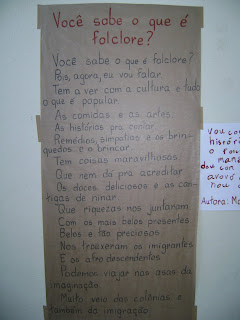 Você sabe o que é
folclore?
Você sabe o que é folclore?
Pois, agora, eu vou falar.
Tem a ver com a cultura e tudo
o que é popular.
As comidas e as artes
As histórias pra contar
Remédios, simpatias e os brin-
quedos e o brincar.
Tem coisas maravilhosas
Que nem dá pra acreditar
Os doces deliciosos e as can-
tigas de ninar
Que riquezas nos juntaram
Com os mais belos presentes
Belos e tão preciosos
Nos trouxeram os imigrantes
E os afro descendentes
Podemos viajar nas asas da
imaginação.
Muito veio das colônias e
também da imigração.
Vou con
história
o
mana
dou con
avovó
nou
Autora: Ma